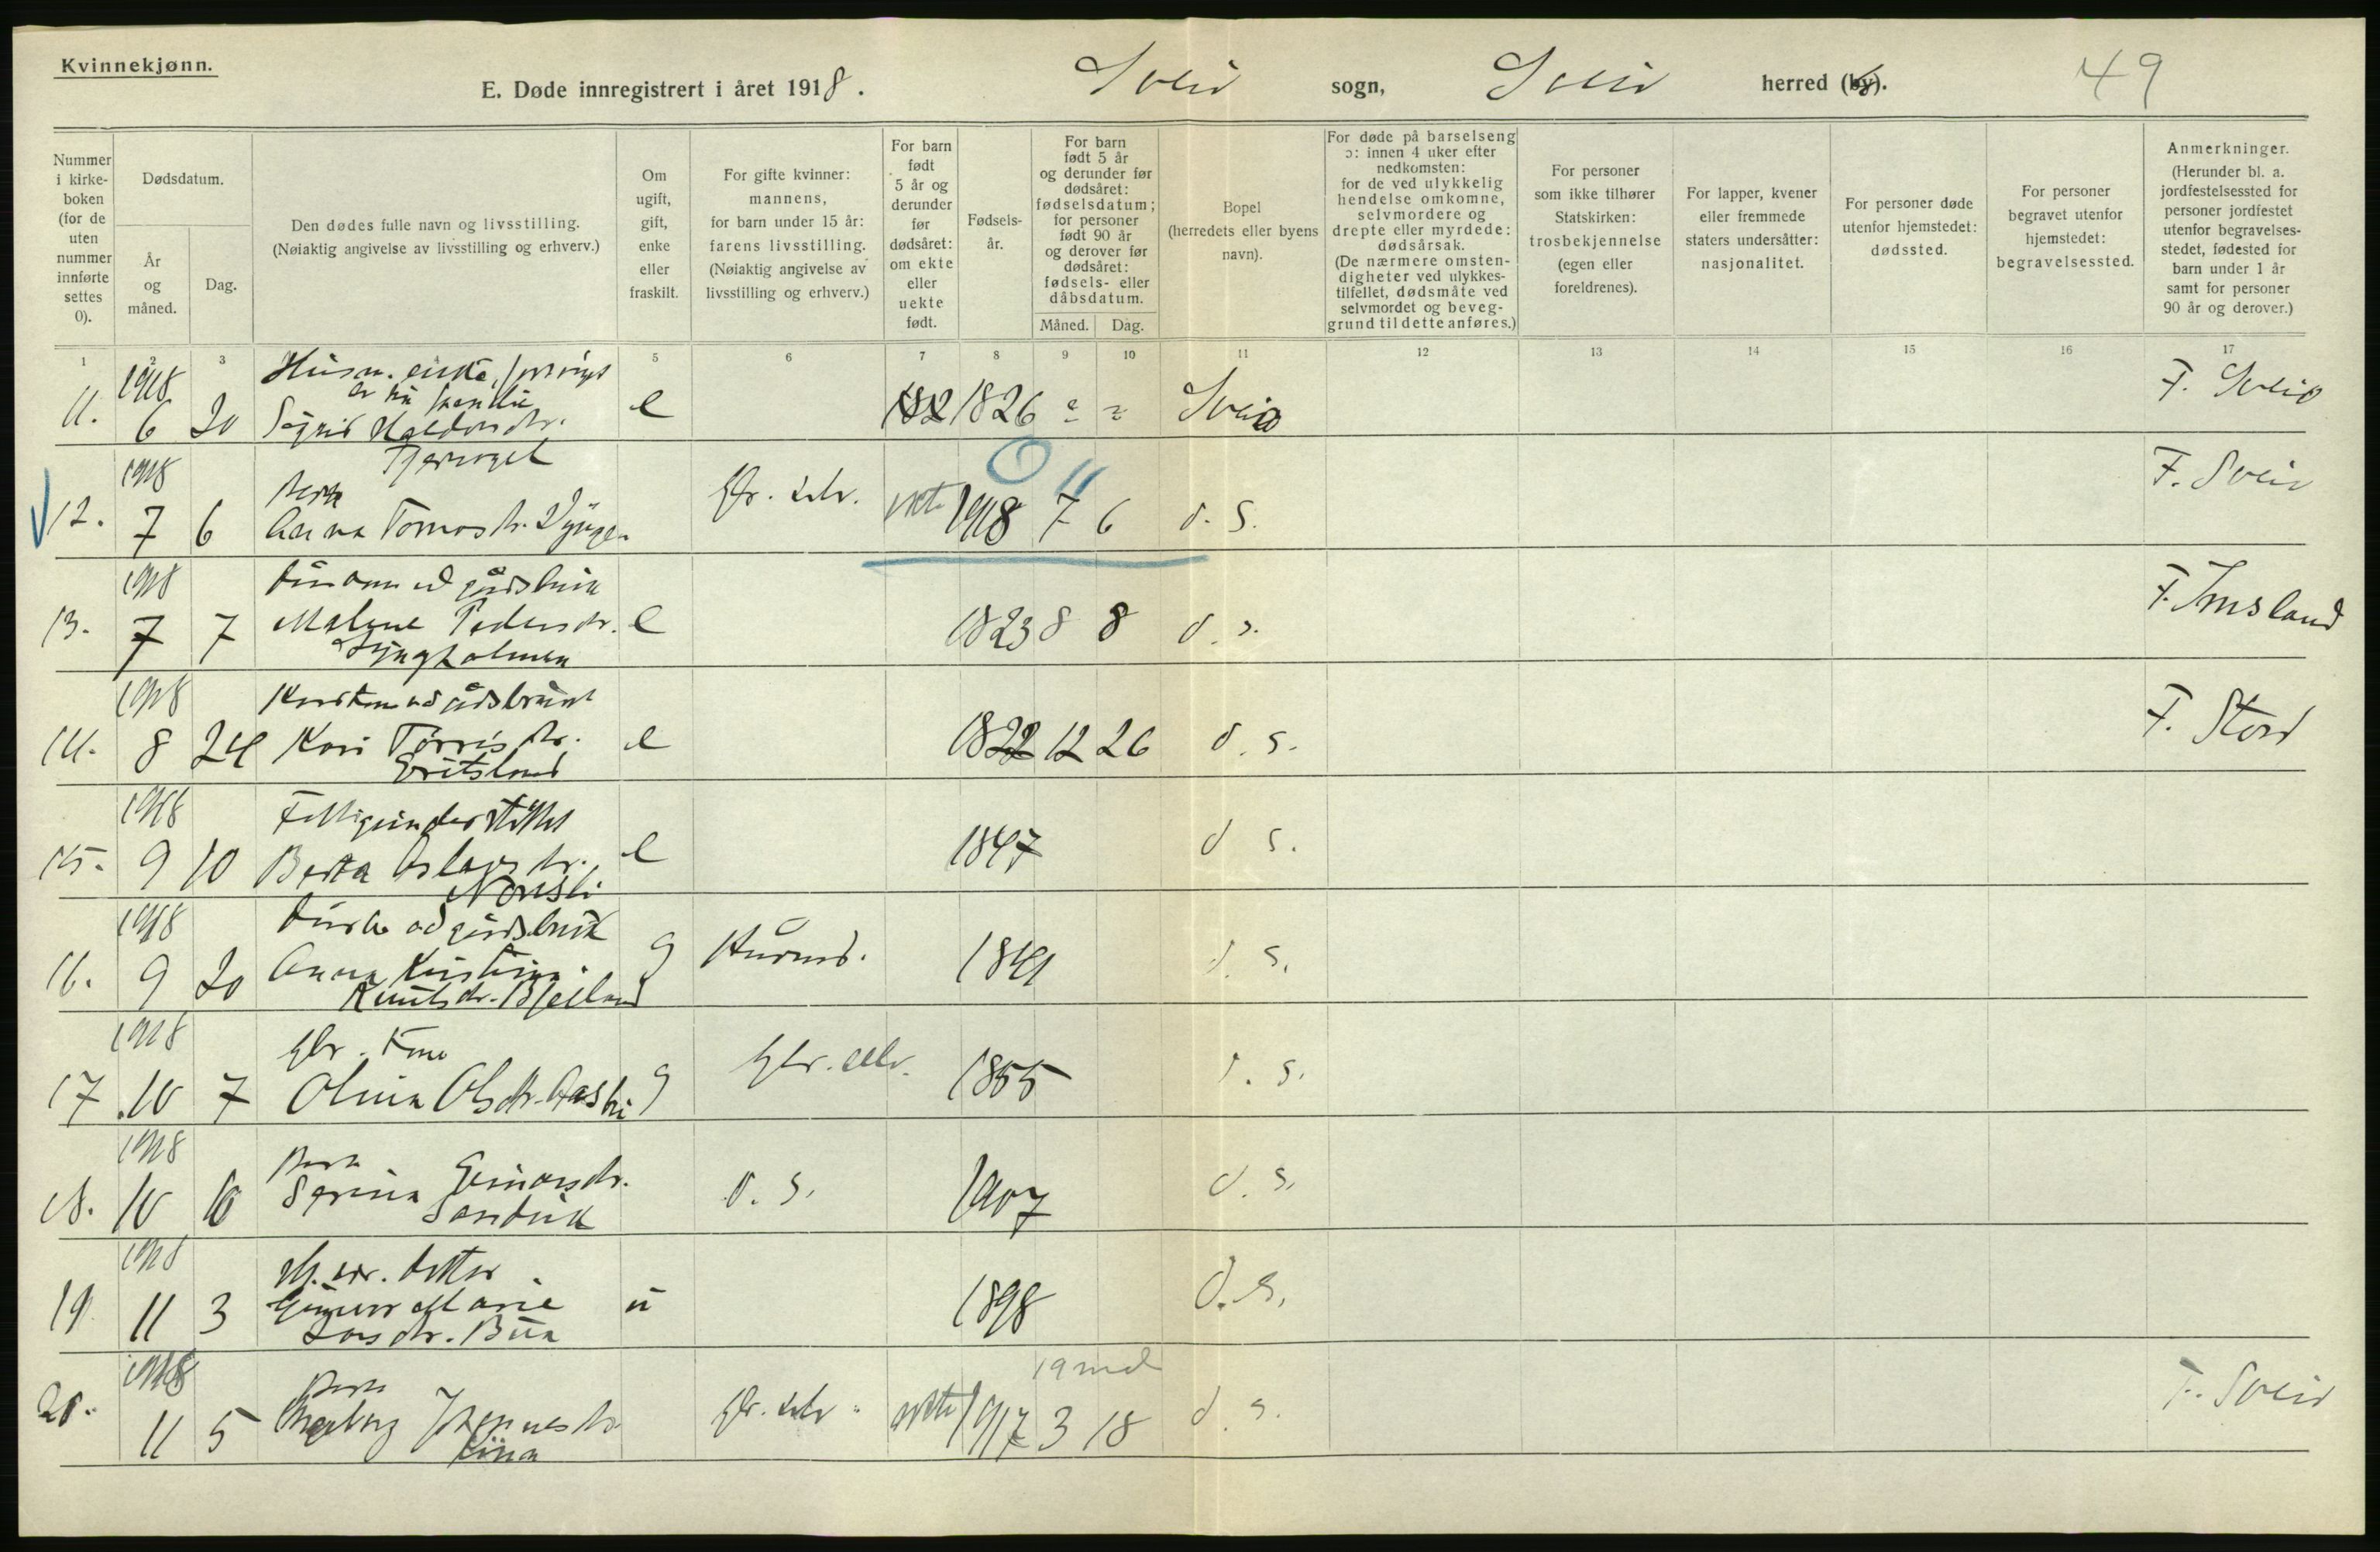 Kvinnekjønn.
E. Døde innregistrert i året 1918. Sveio sogn, Sveio herred (by). 49
Nummer i kirke-boken (for de uten nummer innførte settes 0).
Dødsdatum.
År og måned.
Dag.
Den dødes fulle navn og livsstilling.
(Nøiaktig angivelse av livsstilling og erhverv.)
Om ugift, gift, enke eller fraskilt.
For gifte kvinner: mannens, for barn under 15 år: farens livsstilling. (Nøiaktig angivelse av livsstilling og erhverv.)
For barn født 5 år og derunder før dødsåret: om ekte eller uekte født.
Fødsels-år.
For barn født 5 år og derunder før dødsåret: fødselsdatum; for personer født 90 år og derover før dødsåret: fødsels- eller dåbsdatum.
Måned. Dag.
Bopel (herredets eller byens navn).
For døde på barselseng ɔ: innen 4 uker efter nedkomsten: for de ved ulykkelig hendelse omkomne, selvmordere og drepte eller myrdede: dødsårsak. (De nærmere omsten-digheter ved ulykkes-tilfellet, dødsmåte ved selvmordet og beveg-grund til dette anføres.)
For personer som ikke tilhører Statskirken: trosbekjennelse (egen eller foreldrenes).
For lapper, kvener eller fremmede staters undersåtter: nasjonalitet.
For personer døde utenfor hjemstedet: dødssted.
For personer begravet utenfor hjemstedet: begravelsessted.
Anmerkninger. (Herunder bl. a. jordfestelsessted for personer jordfestet utenfor begravelses-stedet, fødested for barn under 1 år samt for personer 90 år og derover.)
1 2 3 5 6 7 8 9 10 11 12 13 14 15 16 17
1918 Husm. enke, forsørget
av
11. 6 20 Sigrid Haldorsdr. e 1826 Sveio F. Sveio
Tjernagel
1918 Barn
12. 7 6 Anna Tomasdr. gbr. selv. ekte 1918 7 6 d. s. F. Sveio
1918
13. 7 7 Malene Pedersdr. e 1823 8 8 d. s. F. Imsland
Lyngholmen
1918
14. 8 24 Kari Torrisdr. e 1822 12 26 d. s. F. Stord
1918 Fattigunderstøttet
15. 9 10 Berta Aslagsdr. e 1847 d s.
Nonsli
1918
16. 9 20 Anna Kristina g 1841 d. s.
Knutsdr. Bjelland
1918 gbr. kone
17 10 7 Olina Olsdr. g gbr. selv. 1855 d. s.
1918 Barn
18. 10 10 Serina Einarsdr. d. s. 1907 d. s.
Sandvik
1918
19 11 3 Gunvor Marie u 1898 d. s.
Larsdr. Bua
1918 Barn 19 md
20. 11 5 Ingeborg Johannesdr. gbr. selv ekte 1917 3 18 d s. F. Sveio